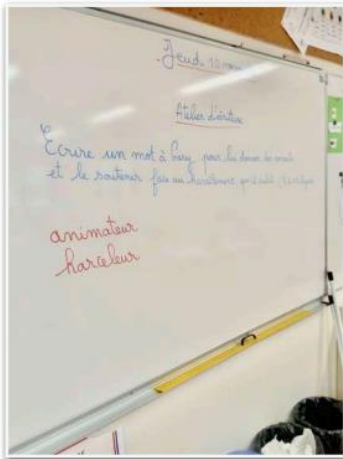 Jeudi 10
Atelier d'écriture
Ecrire un mot à pour lui donner des conseils
et le soutenir face au harcèlement
animateur
harceleur